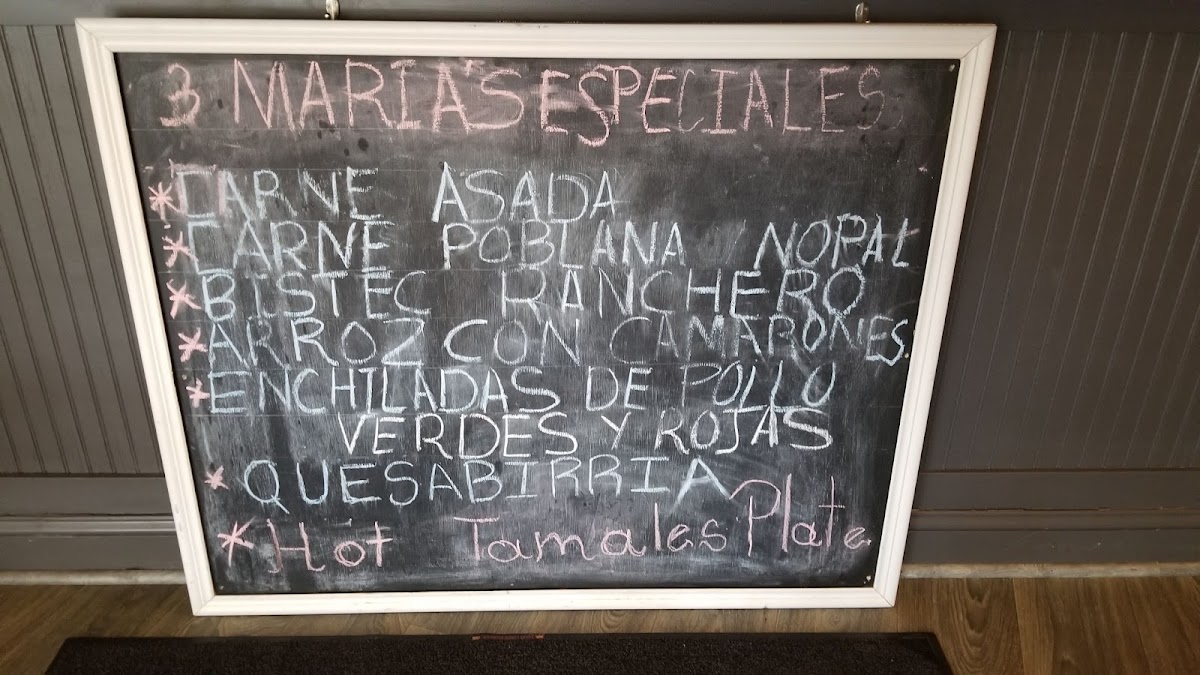 3 MARIA'S ESPECIALES
* CARNE ASADA
* CARNE POBLANA NOPAL
* BISTEC RANCHERO
* ARROZ CON CAMARONES.
* ENCHILADAS DE POLLO
VERDES Y ROJAS
* QUESABIRRIA
* Hot Tamales Plate